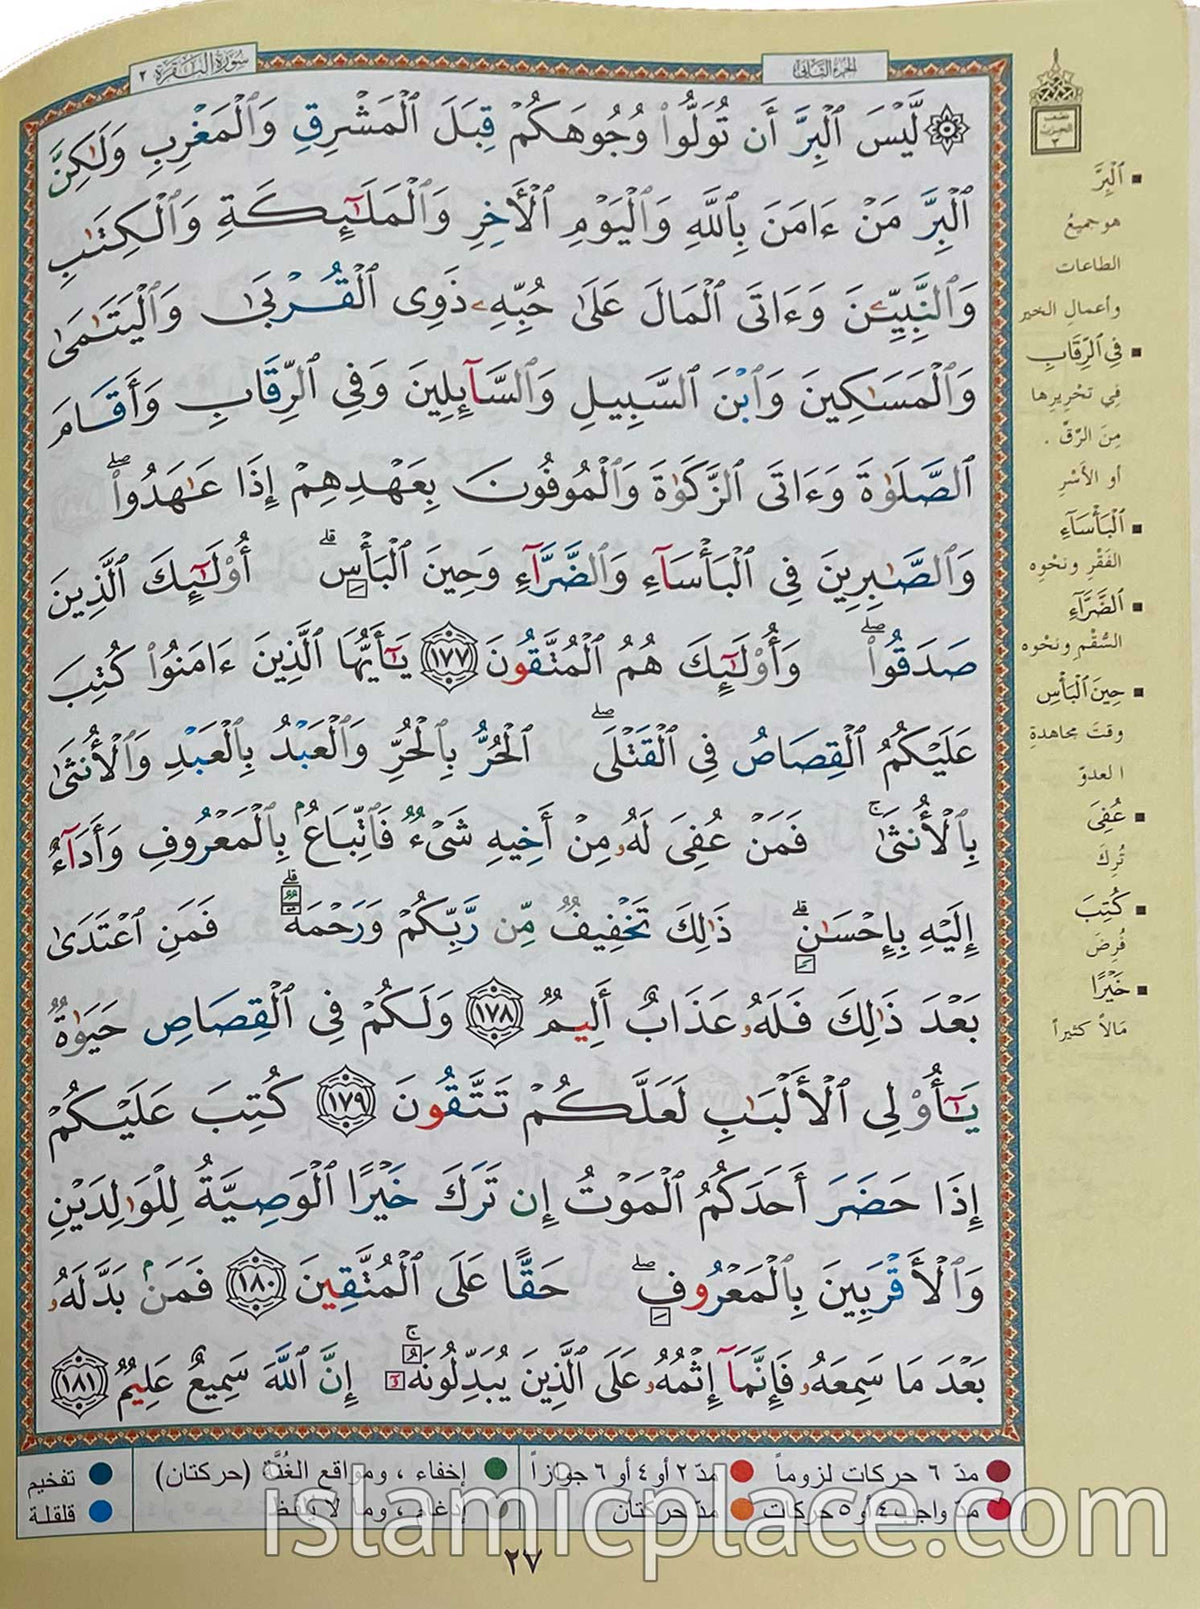 سُورَةُ البَقَرَةِ ٢
الجزء الثاني
نصف
الحزب
٣
۞ لَّيْسَ ٱلْبِرَّ أَن تُوَلُّوا۟ وُجُوهَكُمْ قِبَلَ ٱلْمَشْرِقِ وَٱلْمَغْرِبِ وَلَـٰكِنَّ
ٱلْبِرَّ مَنْ ءَامَنَ بِٱللَّهِ وَٱلْيَوْمِ ٱلْأَخِرِ وَٱلْمَلَـٰٓئِكَةِ وَٱلْكِتَـٰبِ
وَٱلنَّبِيِّـۧنَ وَءَاتَى ٱلْمَالَ عَلَىٰ حُبِّهِۦ ذَوِى ٱلْقُرْبَىٰ وَٱلْيَتَـٰمَىٰ
وَٱلْمَسَـٰكِينَ وَٱبْنَ ٱلسَّبِيلِ وَٱلسَّآئِلِينَ وَفِى ٱلرِّقَابِ وَأَقَامَ
ٱلصَّلَوٰةَ وَءَاتَى ٱلزَّكَوٰةَ وَٱلْمُوفُونَ بِعَهْدِهِمْ إِذَا عَـٰهَدُوا۟ ۖ
وَٱلصَّـٰبِرِينَ فِى ٱلْبَأْسَآءِ وَٱلضَّرَّآءِ وَحِينَ ٱلْبَأْسِ ۗ أُو۟لَـٰٓئِكَ ٱلَّذِينَ
صَدَقُوا۟ ۖ وَأُو۟لَـٰٓئِكَ هُمُ ٱلْمُتَّقُونَ ١٧٧ يَـٰٓأَيُّهَا ٱلَّذِينَ ءَامَنُوا۟ كُتِبَ
عَلَيْكُمُ ٱلْقِصَاصُ فِى ٱلْقَتْلَى ۖ ٱلْحُرُّ بِٱلْحُرِّ وَٱلْعَبْدُ بِٱلْعَبْدِ وَٱلْأُنثَىٰ
بِٱلْأُنثَىٰ ۚ فَمَنْ عُفِىَ لَهُۥ مِنْ أَخِيهِ شَىْءٌ فَٱتِّبَاعٌۢ بِٱلْمَعْرُوفِ وَأَدَآءٌ
إِلَيْهِ بِإِحْسَـٰنٍ ۗ ذَٰلِكَ تَخْفِيفٌ مِّن رَّبِّكُمْ وَرَحْمَةٌ ۗ فَمَنِ ٱعْتَدَىٰ
بَعْدَ ذَٰلِكَ فَلَهُۥ عَذَابٌ أَلِيمٌ ١٧٨ وَلَكُمْ فِى ٱلْقِصَاصِ حَيَوٰةٌ
يَـٰٓأُو۟لِى ٱلْأَلْبَـٰبِ لَعَلَّكُمْ تَتَّقُونَ ١٧٩ كُتِبَ عَلَيْكُمْ
إِذَا حَضَرَ أَحَدَكُمُ ٱلْمَوْتُ إِن تَرَكَ خَيْرًا ٱلْوَصِيَّةُ لِلْوَٰلِدَيْنِ
وَٱلْأَقْرَبِينَ بِٱلْمَعْرُوفِ ۖ حَقًّا عَلَى ٱلْمُتَّقِينَ ١٨٠ فَمَنۢ بَدَّلَهُۥ
بَعْدَ مَا سَمِعَهُۥ فَإِنَّمَآ إِثْمُهُۥ عَلَى ٱلَّذِينَ يُبَدِّلُونَهُۥٓ ۚ إِنَّ ٱللَّهَ سَمِيعٌ عَلِيمٌ ١٨١
▪ ٱلْبِرَّ
هو جميعُ
الطاعات
وأعمالِ الخير
▪ فِي ٱلرِّقَابِ
فِي تحْرِيرِها
مِنَ الرِّقِّ .
أو الأَسْرِ
▪ ٱلْبَأْسَآءِ
الفَقْرِ ونَحْوِه
▪ ٱلضَّرَّآءِ
السُّقْمِ ونَحْوه
▪ حِينَ ٱلْبَأْسِ
وقتَ مجاهدةِ
العدوّ
▪ عُفِىَ
تُرِكَ
▪ كُتِبَ
فُرِضَ
▪ خَيْرًا
مَالاً كثيراً
مدّ ٦ حركات لزوماً مدّ ٢ أو ٤ أو ٦ جوازاً إخفاء ، ومواقع الغُنَّة (حركتان) تفخيم
مدّ واجب ٤ أو ٥ حركات مدّ حركتان إدغام ، وما لا يُلفظ قلقلة
islamicplace.com
٢٧